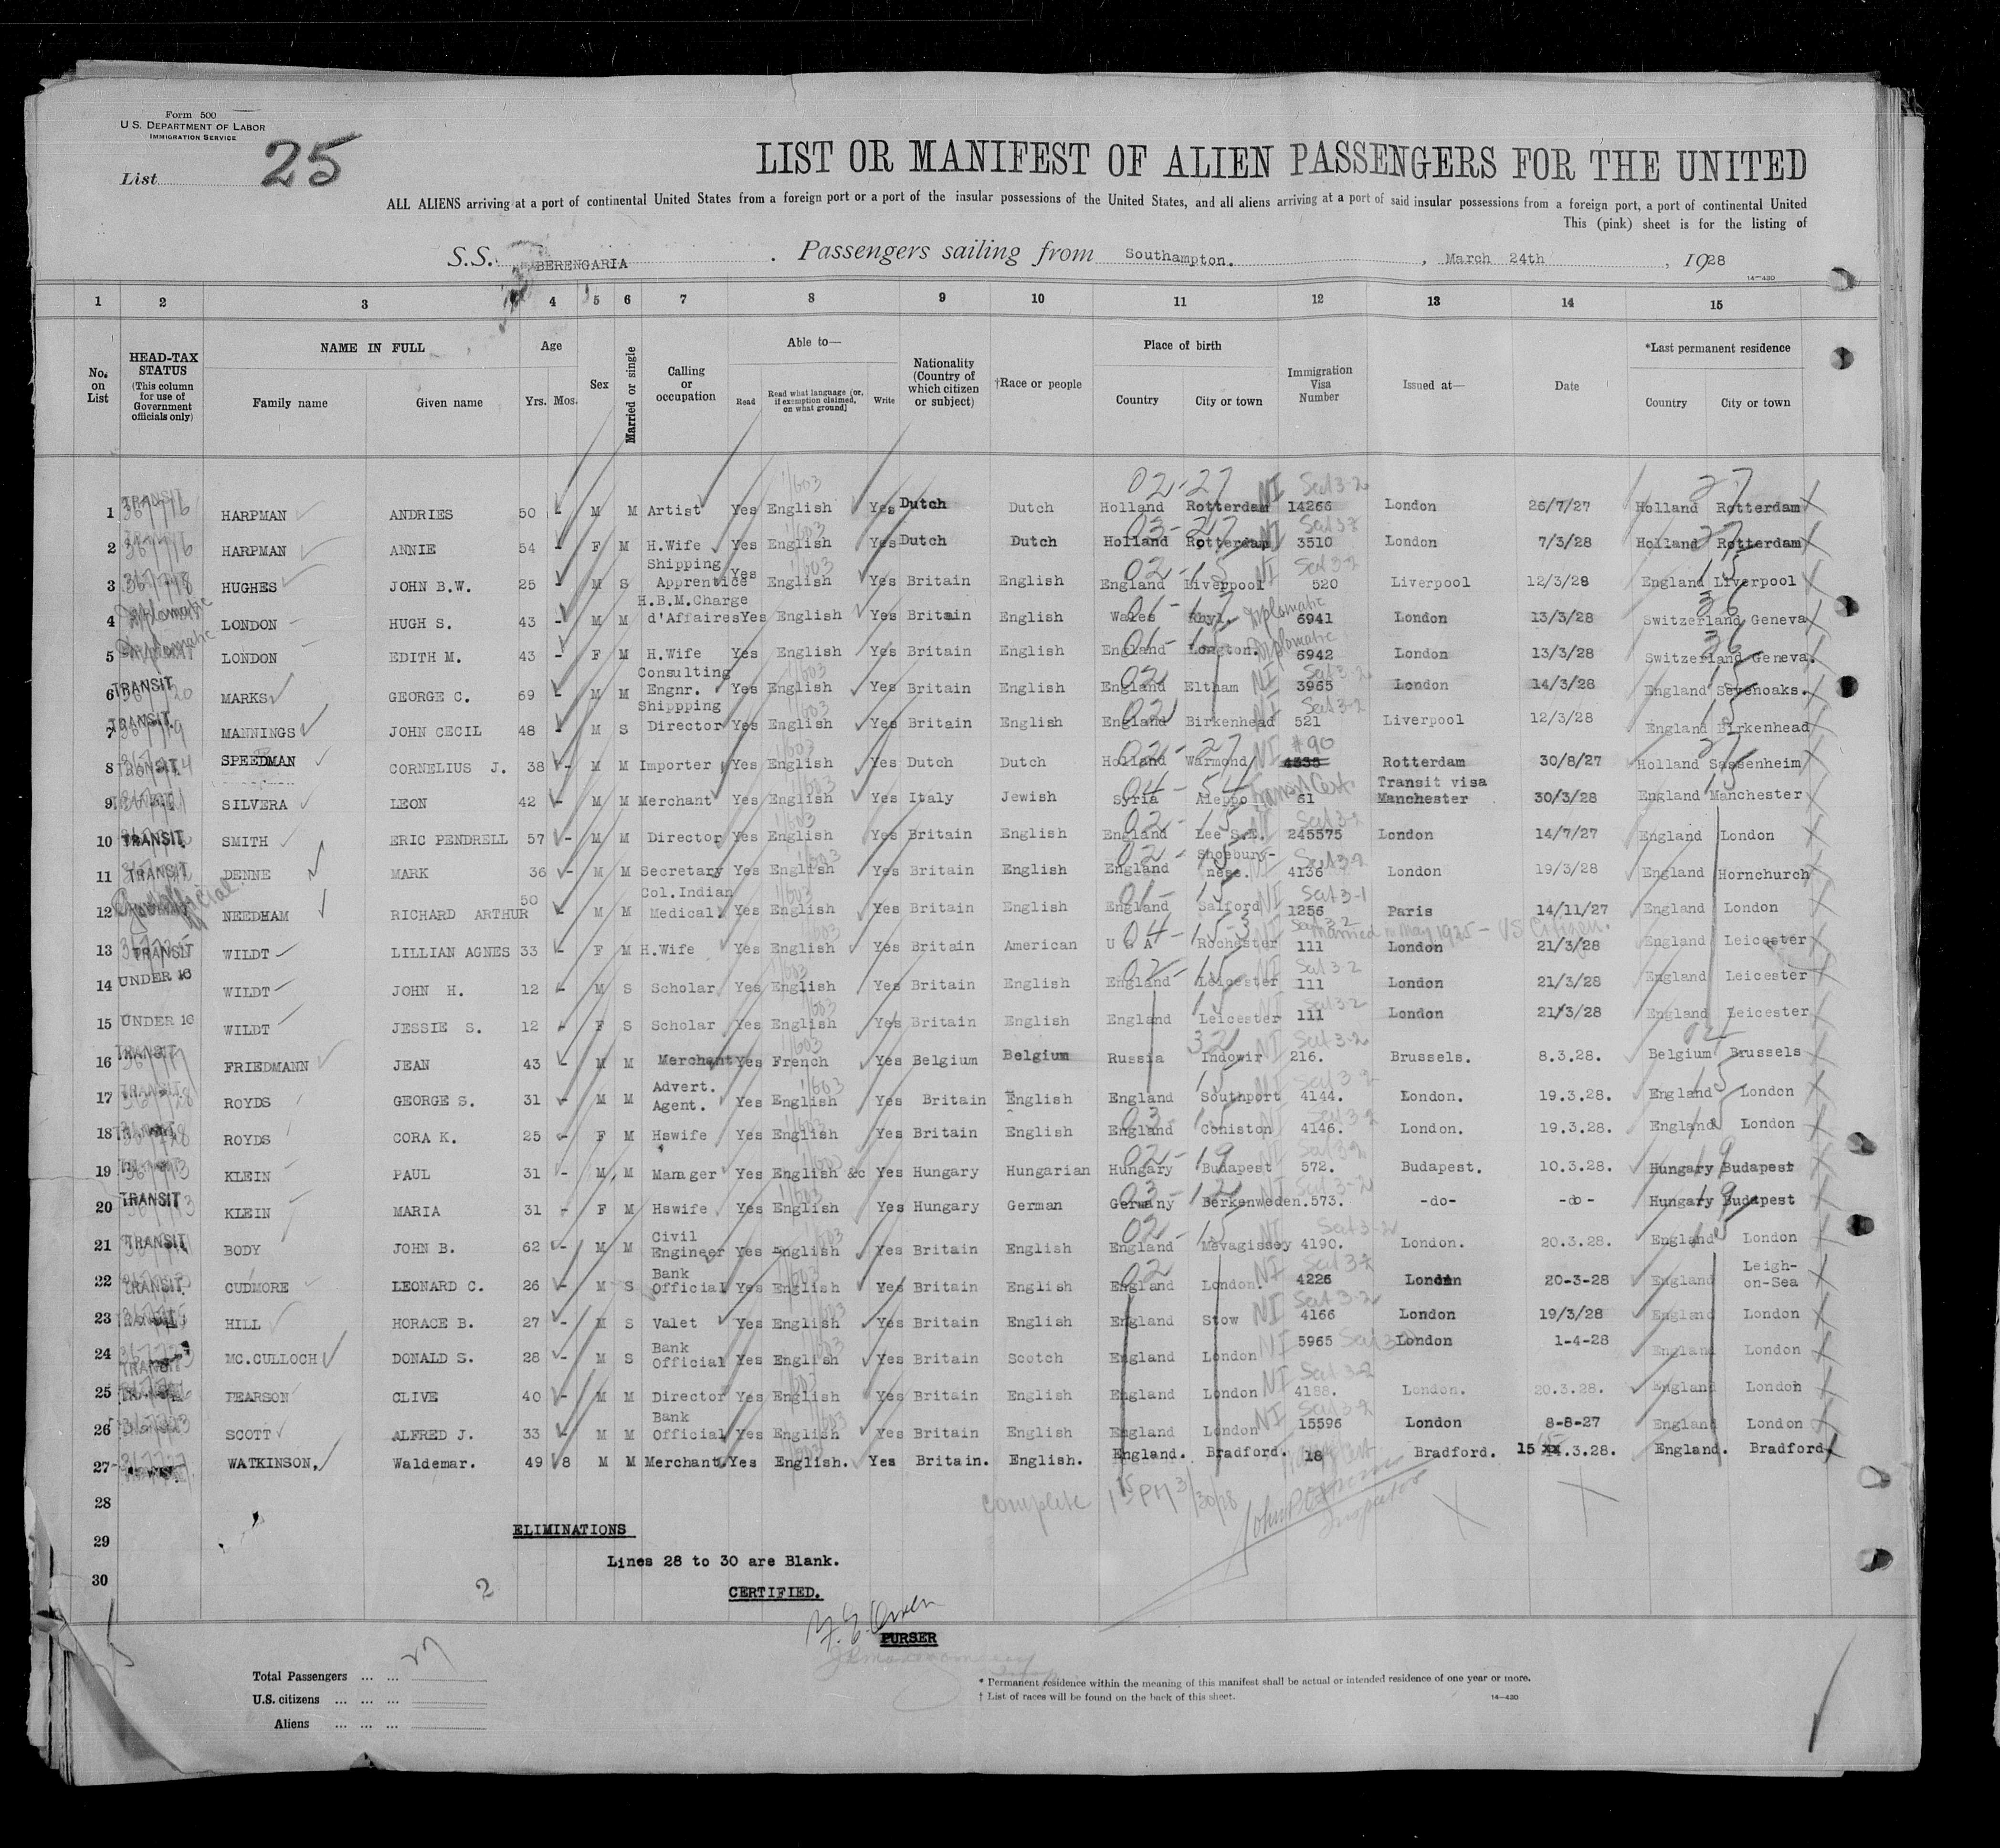 Form 500
U.S. DEPARTMENT OF LABOR
IMMIGRATION SERVICE
List 25
LIST OR MANIFEST OF ALIEN PASSENGERS FOR THE UNITED
ALL ALIENS arriving at a port of continental United States from a foreign port or a port of the insular possessions of the United States, and all aliens arriving at a port of said insular possessions from a foreign port, a port of continental United
This (pink) sheet is for the listing of
S.S. BERENGARIA . Passengers sailing from Southampton. , March 24th , 1928
14-430
1 2 3 4 5 6 7 8 9 10 11 12 13 14 15
No. on List
HEAD-TAX STATUS (This column for use of Government officials only)
NAME IN FULL
Family name Given name
Age
Yrs. Mos.
Sex
Married or single
Calling or occupation
Able to—
Read Read what language (or, if exemption claimed, on what ground) Write
Nationality (Country of which citizen or subject)
†Race or people
Place of birth
Country City or town
Immigration Visa Number
Issued at—
Date
*Last permanent residence
Country City or town
1 TRANSIT HARPMAN ANDRIES 50 - M M Artist Yes English Yes Dutch Dutch Holland Rotterdam 02-27 NI 14266 London 26/7/27 Holland Rotterdam
2 HARPMAN ANNIE 54 - F M H.Wife Yes English Yes Dutch Dutch Holland Rotterdam 03-27 NI 3510 London 7/3/28 Holland Rotterdam
3 HUGHES JOHN B.W. 25 - M S Shipping Apprentice Yes English Yes Britain English England Liverpool 02-15 NI 520 Liverpool 12/3/28 England Liverpool
4 Diplomatic LONDON HUGH S. 43 - M M H.B.M.Charge d'Affaires Yes English Yes Britain English Wales Rhyl. Diplomatic 6941 London 13/3/28 Switzerland Geneva
5 Diplomatic LONDON EDITH M. 43 - F M H.Wife Yes English Yes Britain English England Longton. Diplomatic 6942 London 13/3/28 Switzerland Geneva.
6 TRANSIT MARKS GEORGE C. 69 - M M Consulting Engnr. Yes English Yes Britain English England Eltham NI 3965 London 14/3/28 England Sevenoaks.
7 TRANSIT MANNINGS JOHN CECIL 48 - M S Shippping Director Yes English Yes Britain English England Birkenhead NI 521 Liverpool 12/3/28 England Birkenhead
8 TRANSIT SPEEDMAN CORNELIUS J. 38 - M M Importer Yes English Yes Dutch Dutch Holland Warmond 02-27 NI #90 4335 Rotterdam 30/8/27 Holland Sassenheim
9 SILVERA LEON 42 - M M Merchant Yes English Yes Italy Jewish Syria Aleppo 04-54 Transit Cert. 61 Transit visa Manchester 30/3/28 England Manchester
10 TRANSIT SMITH ERIC PENDRELL 57 - M M Director Yes English Yes Britain English England Lee S.E. 02-15 NI 245575 London 14/7/27 England London
11 TRANSIT DENNE MARK 36 - M M Secretary Yes English Yes Britain English England Shoeburynese. 4136 London 19/3/28 England Hornchurch
12 NEEDHAM RICHARD ARTHUR 50 - M M Col.Indian Medical Yes English Yes Britain English England Salford NI 1256 Paris 14/11/27 England London
13 TRANSIT WILDT LILLIAN AGNES 33 - F M H.Wife Yes English Yes Britain American U S A Rochester NI 111 London 21/3/28 England Leicester
Married in May 1925 - US Citizen.
14 UNDER 16 WILDT JOHN H. 12 - M S Scholar Yes English Yes Britain English England Leicester 02-15 NI 111 London 21/3/28 England Leicester
15 UNDER 16 WILDT JESSIE S. 12 - F S Scholar Yes English Yes Britain English England Leicester NI 111 London 21/3/28 England Leicester
16 TRANSIT FRIEDMANN JEAN 43 - M M Merchant Yes French Yes Belgium Belgium Russia Indowir 32 NI 216. Brussels. 8.3.28. Belgium Brussels
17 TRANSIT ROYDS GEORGE S. 31 - M M Advert. Agent. Yes English Yes Britain English England Southport 15 NI 4144. London. 19.3.28. England London
18 ROYDS CORA K. 25 - F M Hswife Yes English Yes Britain English England Coniston 03-15 NI 4146. London. 19.3.28. England London
19 KLEIN PAUL 31 - M M Manager Yes English &c Yes Hungary Hungarian Hungary Budapest 02-19 NI 572. Budapest. 10.3.28. Hungary Budapest
20 TRANSIT KLEIN MARIA 31 - F M Hswife Yes English Yes Hungary German Germany Berkenweden. 03-12 NI 573. -do- -do- Hungary Budapest
21 TRANSIT BODY JOHN B. 62 - M M Civil Engineer Yes English Yes Britain English England Mevagissey 02-15 NI 4190. London. 20.3.28. England London
22 TRANSIT CUDMORE LEONARD C. 26 - M S Bank Official Yes English Yes Britain English England London. 02 NI 4226 London 20-3-28 England Leigh-on-Sea
23 HILL HORACE B. 27 - M S Valet Yes English Yes Britain English England Stow NI 4166 London 19/3/28 England London
24 TRANSIT MC.CULLOCH DONALD S. 28 - M S Bank Official Yes English Yes Britain Scotch England London NI 5965 London 1-4-28 England London
25 PEARSON CLIVE 40 - M M Director Yes English Yes Britain English England London NI 4188. London. 20.3.28. England London
26 SCOTT ALFRED J. 33 - M M Bank Official Yes English Yes Britain English England London NI 15596 London 8-8-27 England London
27 WATKINSON. Waldemar. 49 8 M M Merchant. Yes English. Yes Britain. English. England. Bradford. 18 Bradford. 15 xx.3.28. England. Bradford
28
complete 1 15 PM 3/30/28
Inspector
29
30
ELIMINATIONS
Lines 28 to 30 are Blank.
CERTIFIED.
2
PURSER
Total Passengers ... ... 27
U.S. citizens ... ... ...
Aliens ... ... ...
* Permanent residence within the meaning of this manifest shall be actual or intended residence of one year or more.
† List of races will be found on the back of this sheet.
14-430